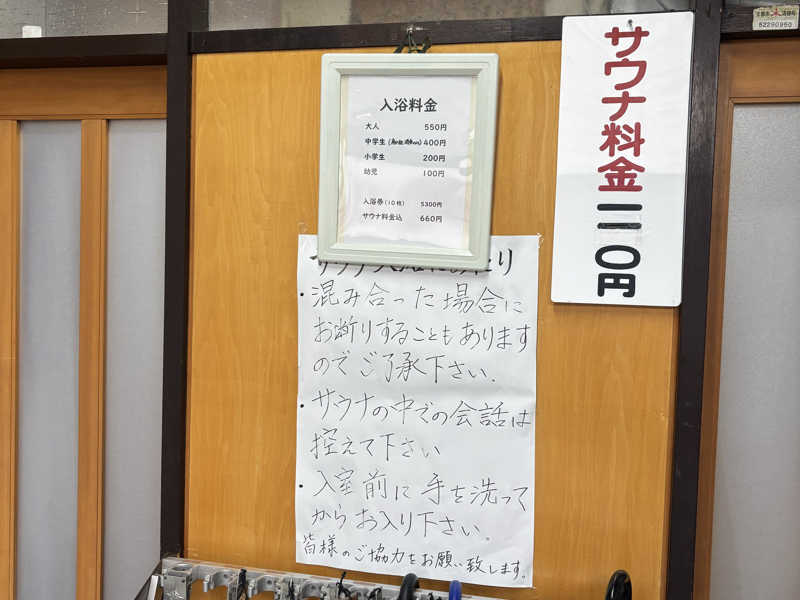 入浴料金
大人 550円
中学生 400円
小学生 200円
幼児 100円
入浴券(10枚) 5300円
サウナ料金込 660円
サウナ料金一一〇円
・混み合った場合に
お断りすることもあります
のでご了承下さい.
・サウナの中での会話は
控えて下さい
・入室前に手を洗って
からお入り下さい.
皆様のご協力をお願い致します。
52290950